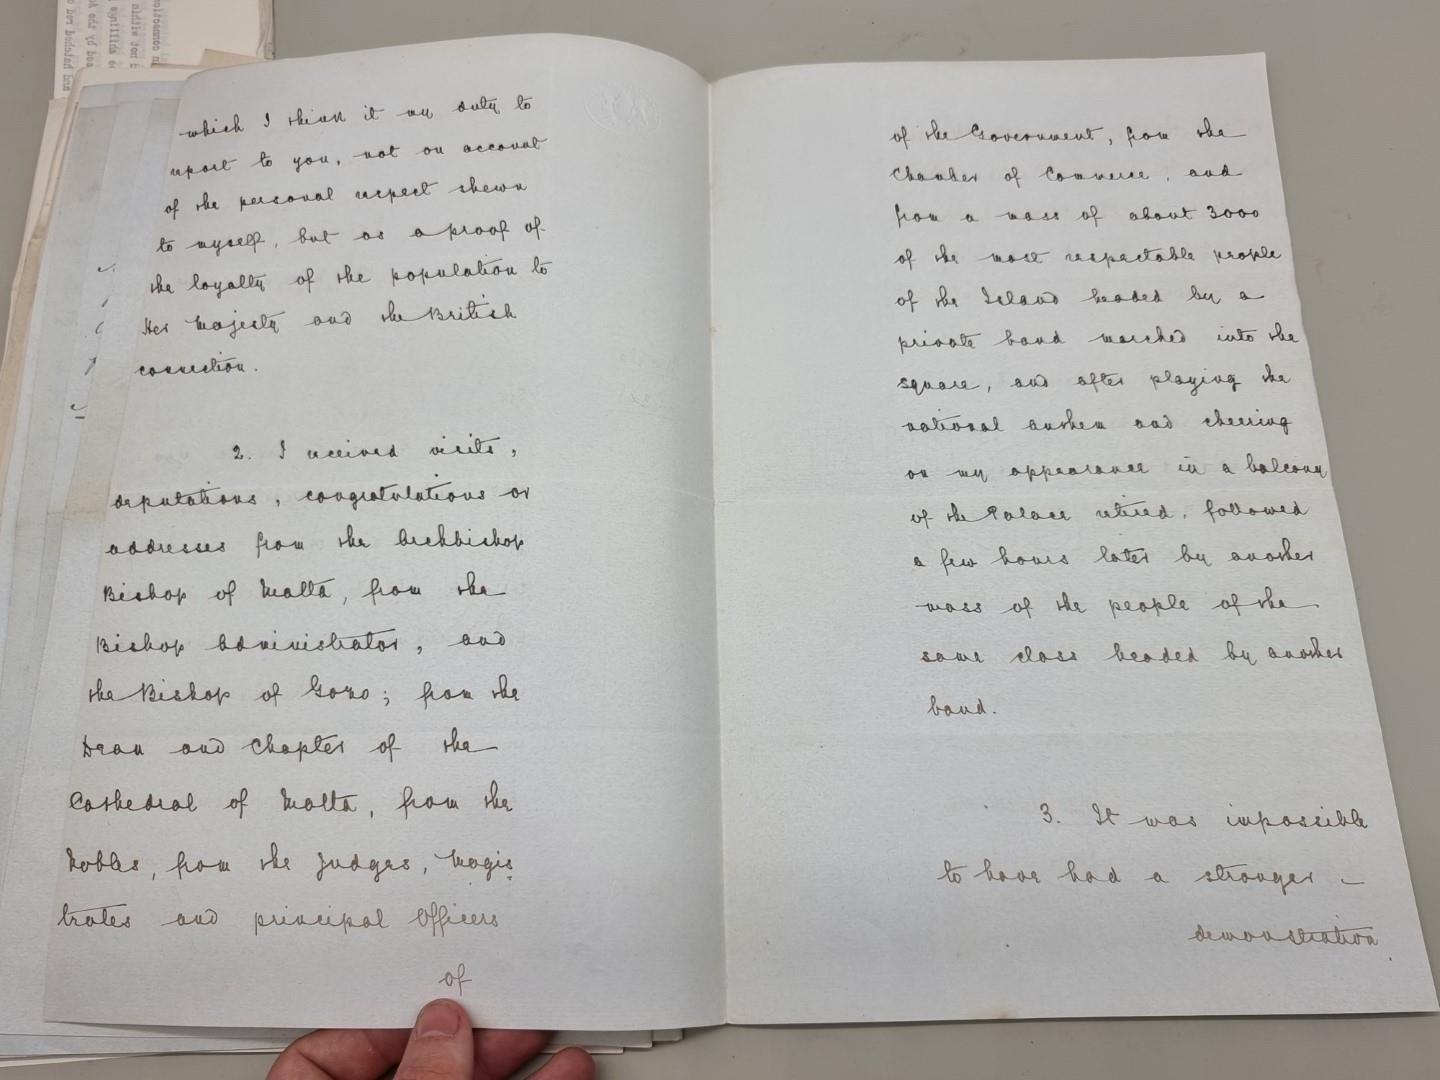 which I think it my duty to
report to you, not on account
of the personal respect shewn
to myself, but as a proof of
the loyalty of the population to
Her Majesty and the British
connection.
2. I received visits,
deputations, congratulations or
addresses from the Archbishop
Bishop of Malta, from the
Bishop Administrator, and
the Bishop of Gozo; from the
Dean and Chapter of the
Cathedral of Malta, from the
Nobles, from the Judges, Magis
trates and principal Officers
of
of the Government, from the
Chamber of Commerce, and
from a mass of about 3000
of the most respectable people
of the Island headed by a
private band marched into the
square, and after playing the
national anthem and cheering
on my appearance in a balcony
of the Palace retired, followed
a few hours later by another
mass of the people of the
same class headed by another
band.
3. It was impossible
to have had a stronger
demonstration